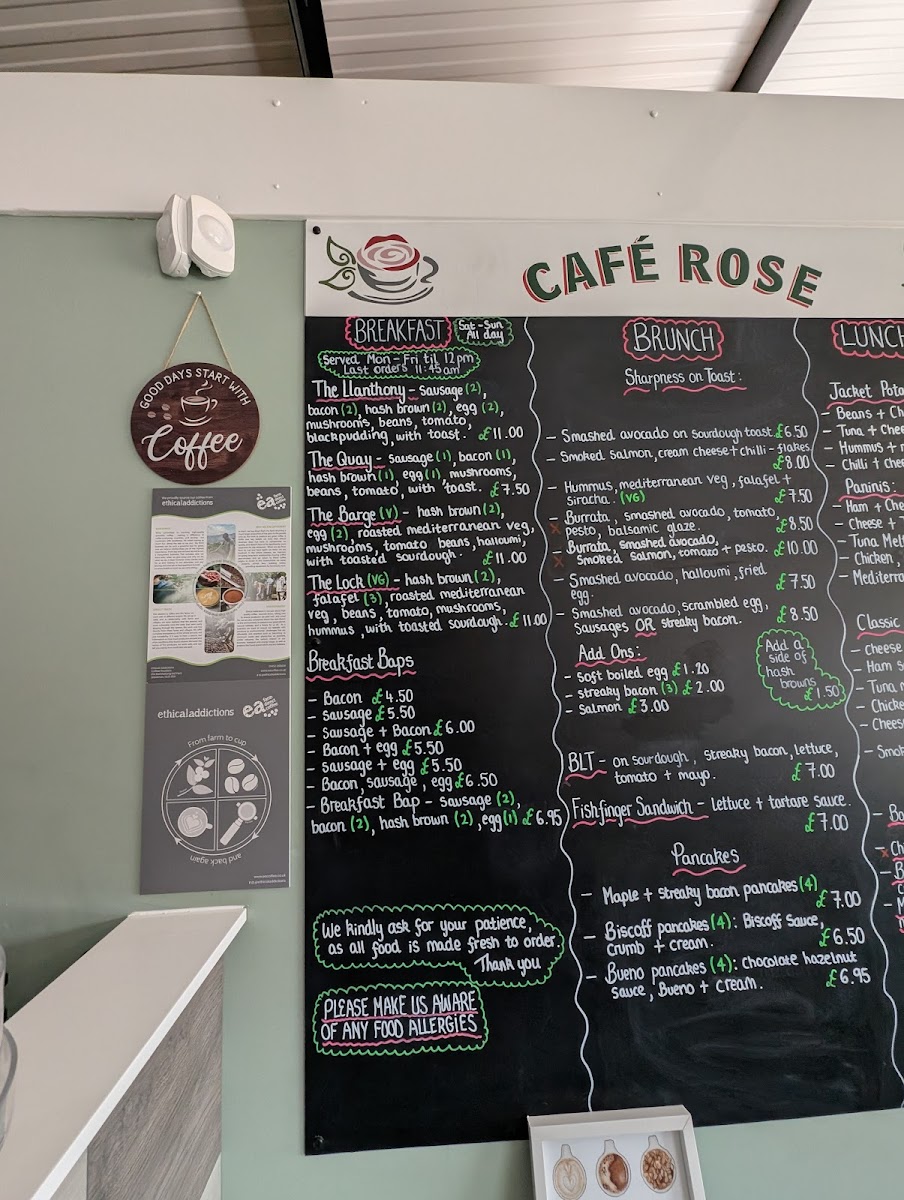 CAFÉ ROSE
BREAKFAST
Sat-Sun
All day
Served Mon-Fri til 12pm
Last orders 11:45am
The Llanthony - sausage (2),
bacon (2), hash brown (2), egg (2),
mushrooms, beans, tomato,
blackpudding, with toast. £11.00
The Quay - sausage (1), bacon (1),
hash brown (1), egg (1), mushrooms,
beans, tomato, with toast. £7.50
The Barge (V) - hash brown (2),
egg (2), roasted mediterranean veg,
mushrooms, tomato beans, halloumi,
with toasted sourdough. £11.00
The Lock (VG) - hash brown (2),
falafel (3), roasted mediterranean
veg, beans, tomato, mushrooms,
hummus, with toasted sourdough. £11.00
Breakfast Baps
- Bacon £4.50
- Sausage £5.50
- Sausage + Bacon £6.00
- Bacon + egg £5.50
- Sausage + egg £5.50
- Bacon, sausage, egg £6.50
- Breakfast Bap - sausage (2),
bacon (2), hash brown (2), egg (1) £6.95
We kindly ask for your patience,
as all food is made fresh to order.
Thank you
PLEASE MAKE US AWARE
OF ANY FOOD ALLERGIES
BRUNCH
Sharpness on Toast:
- Smashed avocado on sourdough toast £6.50
- Smoked salmon, cream cheese + chilli-flakes
£8.00
- Hummus, mediterranean veg, falafel +
siracha. (VG) £7.50
- Burrata, smashed avocado, tomato,
x pesto, balsamic glaze. £8.50
- Burrata, smashed avocado,
x Smoked salmon, tomato + pesto. £10.00
- Smashed avocado, halloumi, fried
egg. £7.50
- Smashed avocado, scrambled egg,
Sausages OR streaky bacon. £8.50
Add Ons:
- soft boiled egg £1.20
- streaky bacon (3) £2.00
- Salmon £3.00
Add a
side of
hash
browns
£1.50
BLT - on sourdough, streaky bacon, lettuce,
tomato + mayo. £7.00
Fishfinger Sandwich - lettuce + tartare sauce.
£7.00
Pancakes
- Maple + streaky bacon pancakes (4)
£7.00
- Biscoff pancakes (4): Biscoff Sauce,
Crumb + cream. £6.50
- Bueno pancakes (4): chocolate hazelnut
sauce, Bueno + cream. £6.95
LUNCH
Jacket Pota
- Beans + Ch
- Tuna + Chee
- Hummus +
- Chilli + chee
Paninis:
- Ham + Chee
- Cheese +
- Tuna Melt
- Chicken,
- Mediterra
Classic
- Cheese
- Ham s
- Tuna
- Chicke
- Chees
- Smok
GOOD DAYS START WITH
Coffee
ethicaladdictions
ea
ethicaladdictions
ea
From farm to cup
and back again